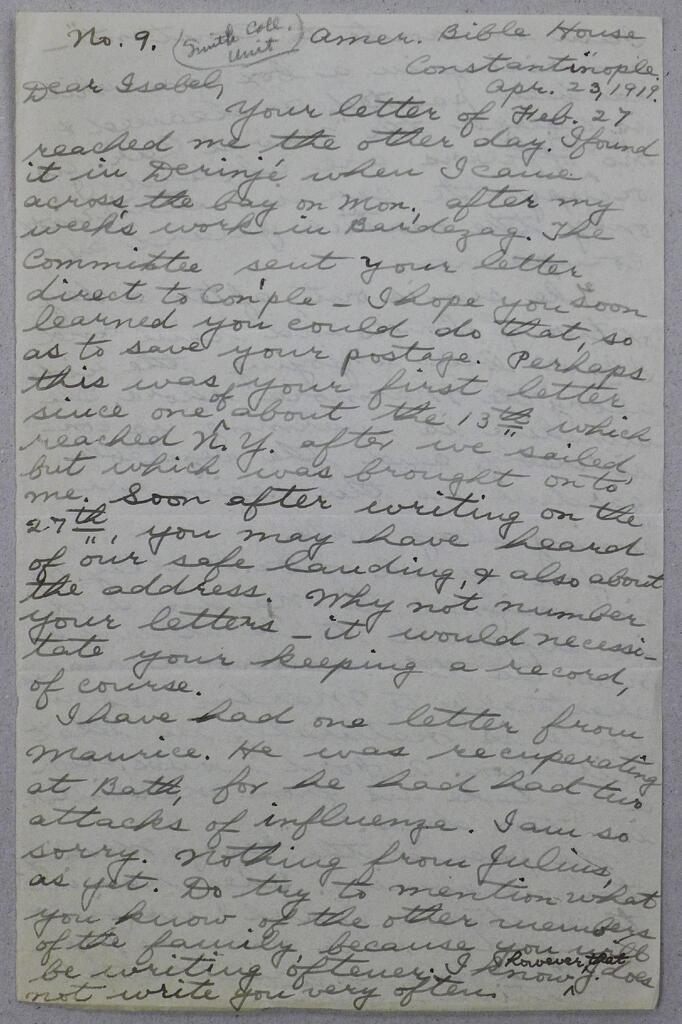 No. 9. (Smith Coll. Unit) Amer. Bible House
Constantinople,
Apr. 23, 1919.
Dear Isabel,
Your letter of Feb. 27
reached me the other day. I found
it in Derinjé when I came
across the bay on Mon., after my
week's work in Bardezag. The
Committee sent your letter
direct to Con'ple – I hope you soon
learned you could do that, so
as to save your postage. Perhaps
this was your first letter
since one of about the 13th which
reached N.Y. after we sailed,
but which was brought on to
me. Soon after writing on the
27th, you may have heard
of our safe landing, & also about
the address. Why not number
your letters – it would necessi-
tate your keeping a record,
of course.
I have had one letter from
Maurice. He was recuperating
at Bath, for he had had two
attacks of influenza. I am so
sorry. Nothing from Julius,
as yet. Do try to mention what
you know of the other members
of the family, because you will
be writing oftener. I know, however, that J. does
not write you very often.